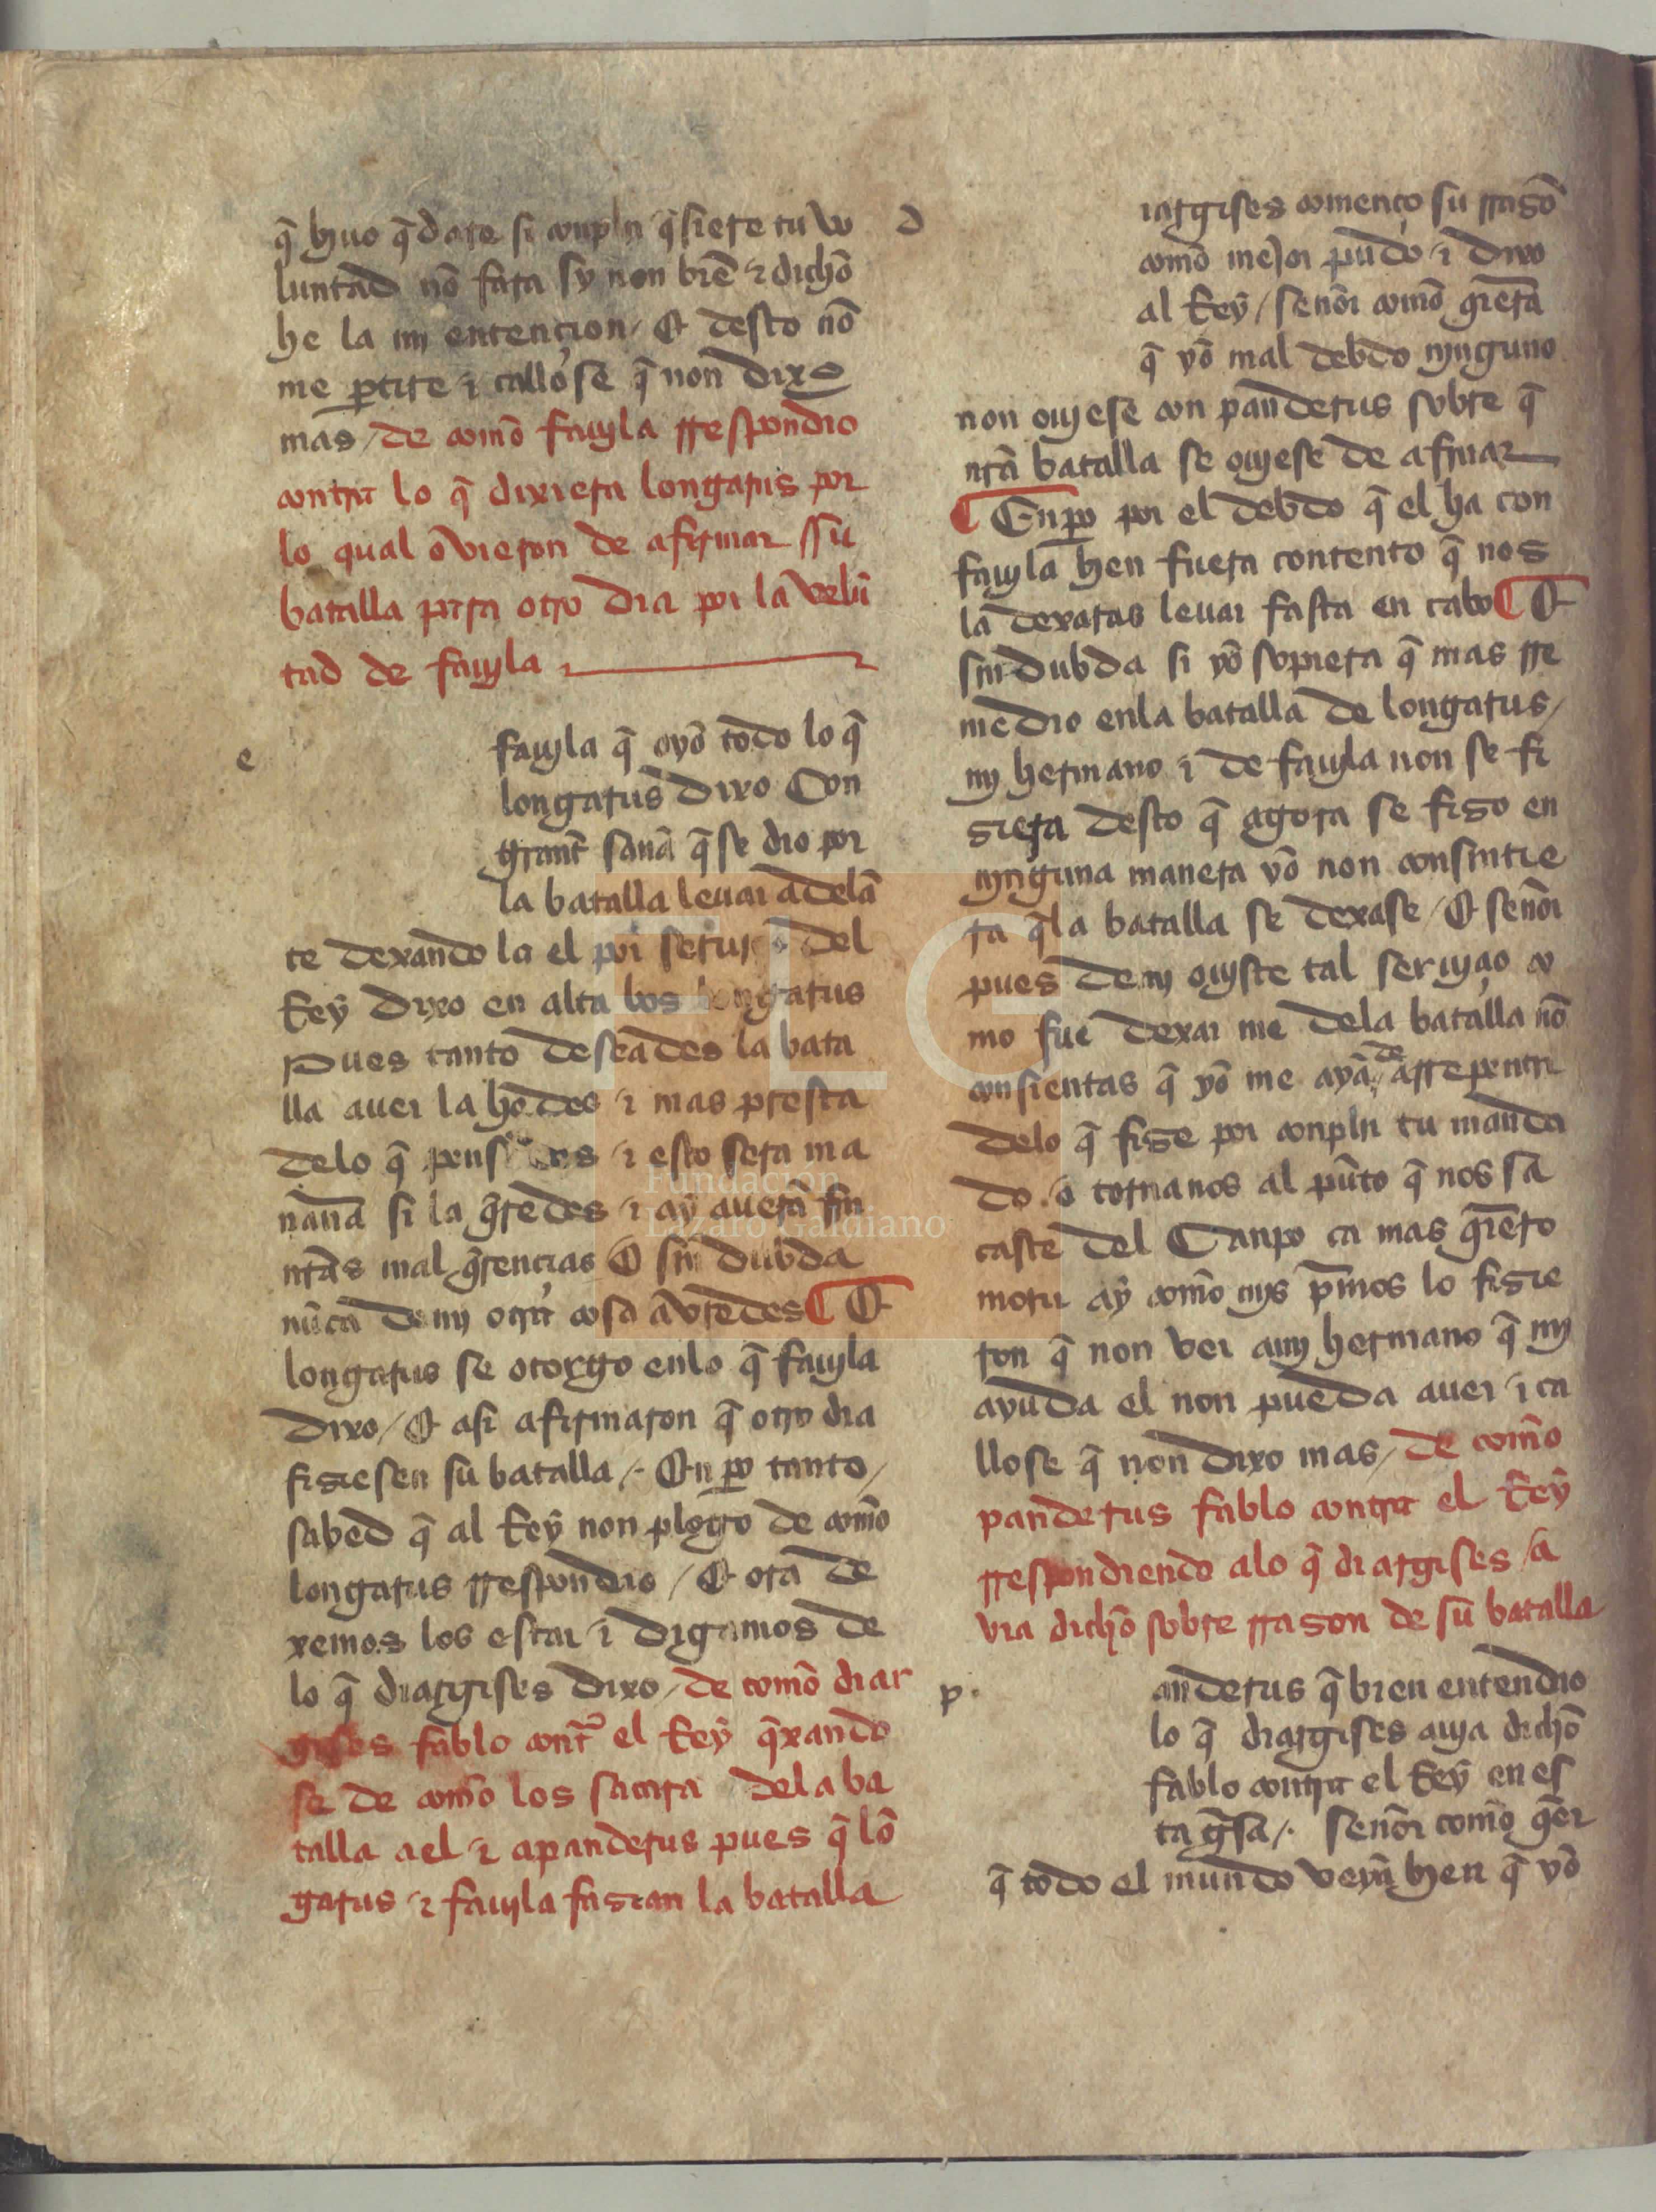 q̃ huo q̃dare si conplir q̃siere tu vo
luntad nõ fara sy non biẽ ⁊ dichõ
he la mi entençion / Et desto nõ
me partire ⁊ callose q̃ non dixo
mas / de comõ fauyla rrespondio
contra lo q̃ dixiera longarus por
lo qual ovieron de afirmar ssu
batalla para otro dia por la volũ
tad de fauyla
e
fauyla q̃ oyõ todo lo q̃
longarus dixo Con
grant sanã q̃ se dio por
la batalla leuar adelã
te dexando la el por del
Rey dixo en alta bos longarus
pues tanto deseades la bata
lla auer la hedes ⁊ mas presta
delo q̃ ⁊ esto sera ma
ñana si la q̃redes ⁊ ay auera fin
nr̃as mal q̃rencias O sin dubda
nũca de mi otra cosa avredes ¶ Et
longarus se otorgo enlo q̃ fauyla
dixo / Et asi afirmaron q̃ otro dia
fisiesen su batalla /. Enpero tanto /
sabed q̃ al Rey non plogo de comõ
longarus rrespondio / Et ora de
xemos los estar ⁊ digamos de
lo q̃ diargises dixo / de comõ diar
gises fablo contr̃ el Rey q̃xando
se de comõ los sacara dela ba
talla a el ⁊ a panderus pues q̃ lõ
garus ⁊ fauyla fasian la batalla
d
iargises començo su rrasõ
comõ mejor pudo ⁊ dixo
al Rey / señor comõ q̃era
q̃ yõ mal debdo nynguno
non ouyese con panderus sobre q̃
nr̃a batalla se ouyese de afirmar
¶ Enpero por el debdo q̃ el ha con
fauyla bien fuera contento q̃ nos
la dexaras leuar fasta en cabo ¶ Et
sin dubda si yõ sopiera q̃ mas rre
medio enla batalla de longarus /
my hermano ⁊ de fauyla non se fi
siera desto q̃ agora se fiso en
nynguna manera yõ non consintie
ra q̃la batalla se dexase / Et señor
pues de my ouyste tal seruyçio co
mo fue dexar me dela batalla nõ
consientas q̃ yõ me aya de arrepentir
delo q̃ fise por conplir tu manda
do / o tornanos al pũto q̃ nos sa
caste del Canpo ca mas q̃ero
morir ay comõ mys p̃mos lo fisie
ron q̃ non ver a my hermano q̃ my
ayuda el non pueda auer ⁊ ca
llose q̃ non dixo mas / de comõ
panderus fablo contra el Rey
rrespondiendo alo q̃ diargises / a
via dichõ sobre rrason de su batalla
p.
anderus q̃ bien entendio
lo q̃ diargises auya dichõ
fablo contra el Rey en es
ta g̃sa /. señor comõ q̃er
q̃ todo el mundo veyã bien q̃ yõ
FLG
Fundación
Lázaro Galdiano